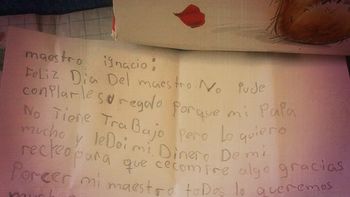 maestro ignacio:
Feliz Dia Del maestro No pude
conplarle su regalo porque mi PaPa
No Tiene TraBajo Pero Lo quiero
mucho y leDoi mi Dinero De mi
recreo para que cecomPre algo gracias
Por cer mi maestro toDos lo queremos